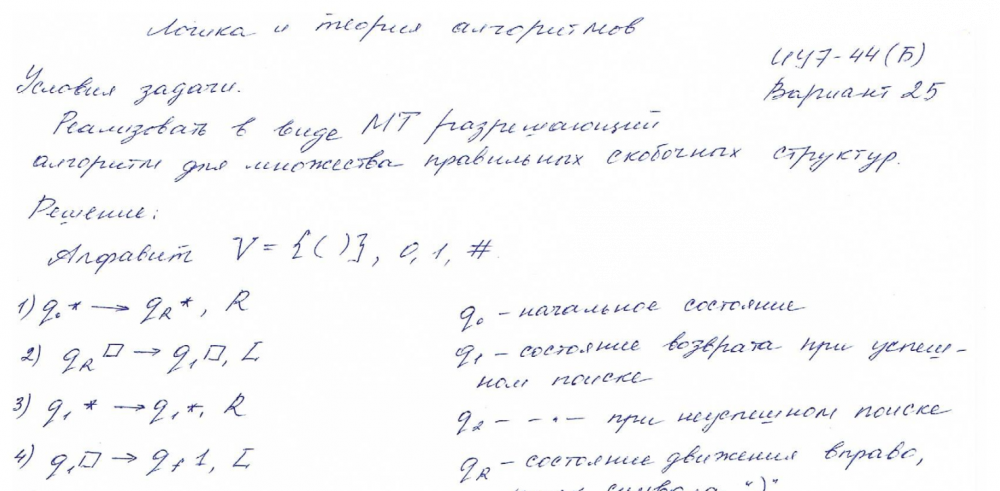 Логика и теория алгоритмов
ИУ7-44(Б)
Вариант 25
Условия задачи.
Реализовать в виде МТ разрешающий
алгоритм для множества правильных скобочных структур.
Решение:
Алфавит V = {( )}, 0, 1, #
1) q₀* → q_R*, R
q₀ - начальное состояние
2) q_R□ → q₁□, L
q₁ - состояние возврата при успеш-
ном поиске
3) q₁* → q₁*, R
q₂ - - " - при неуспешном поиске
4) q₁□ → q_f 1, L
q_R - состояние движения вправо,
символа ")"